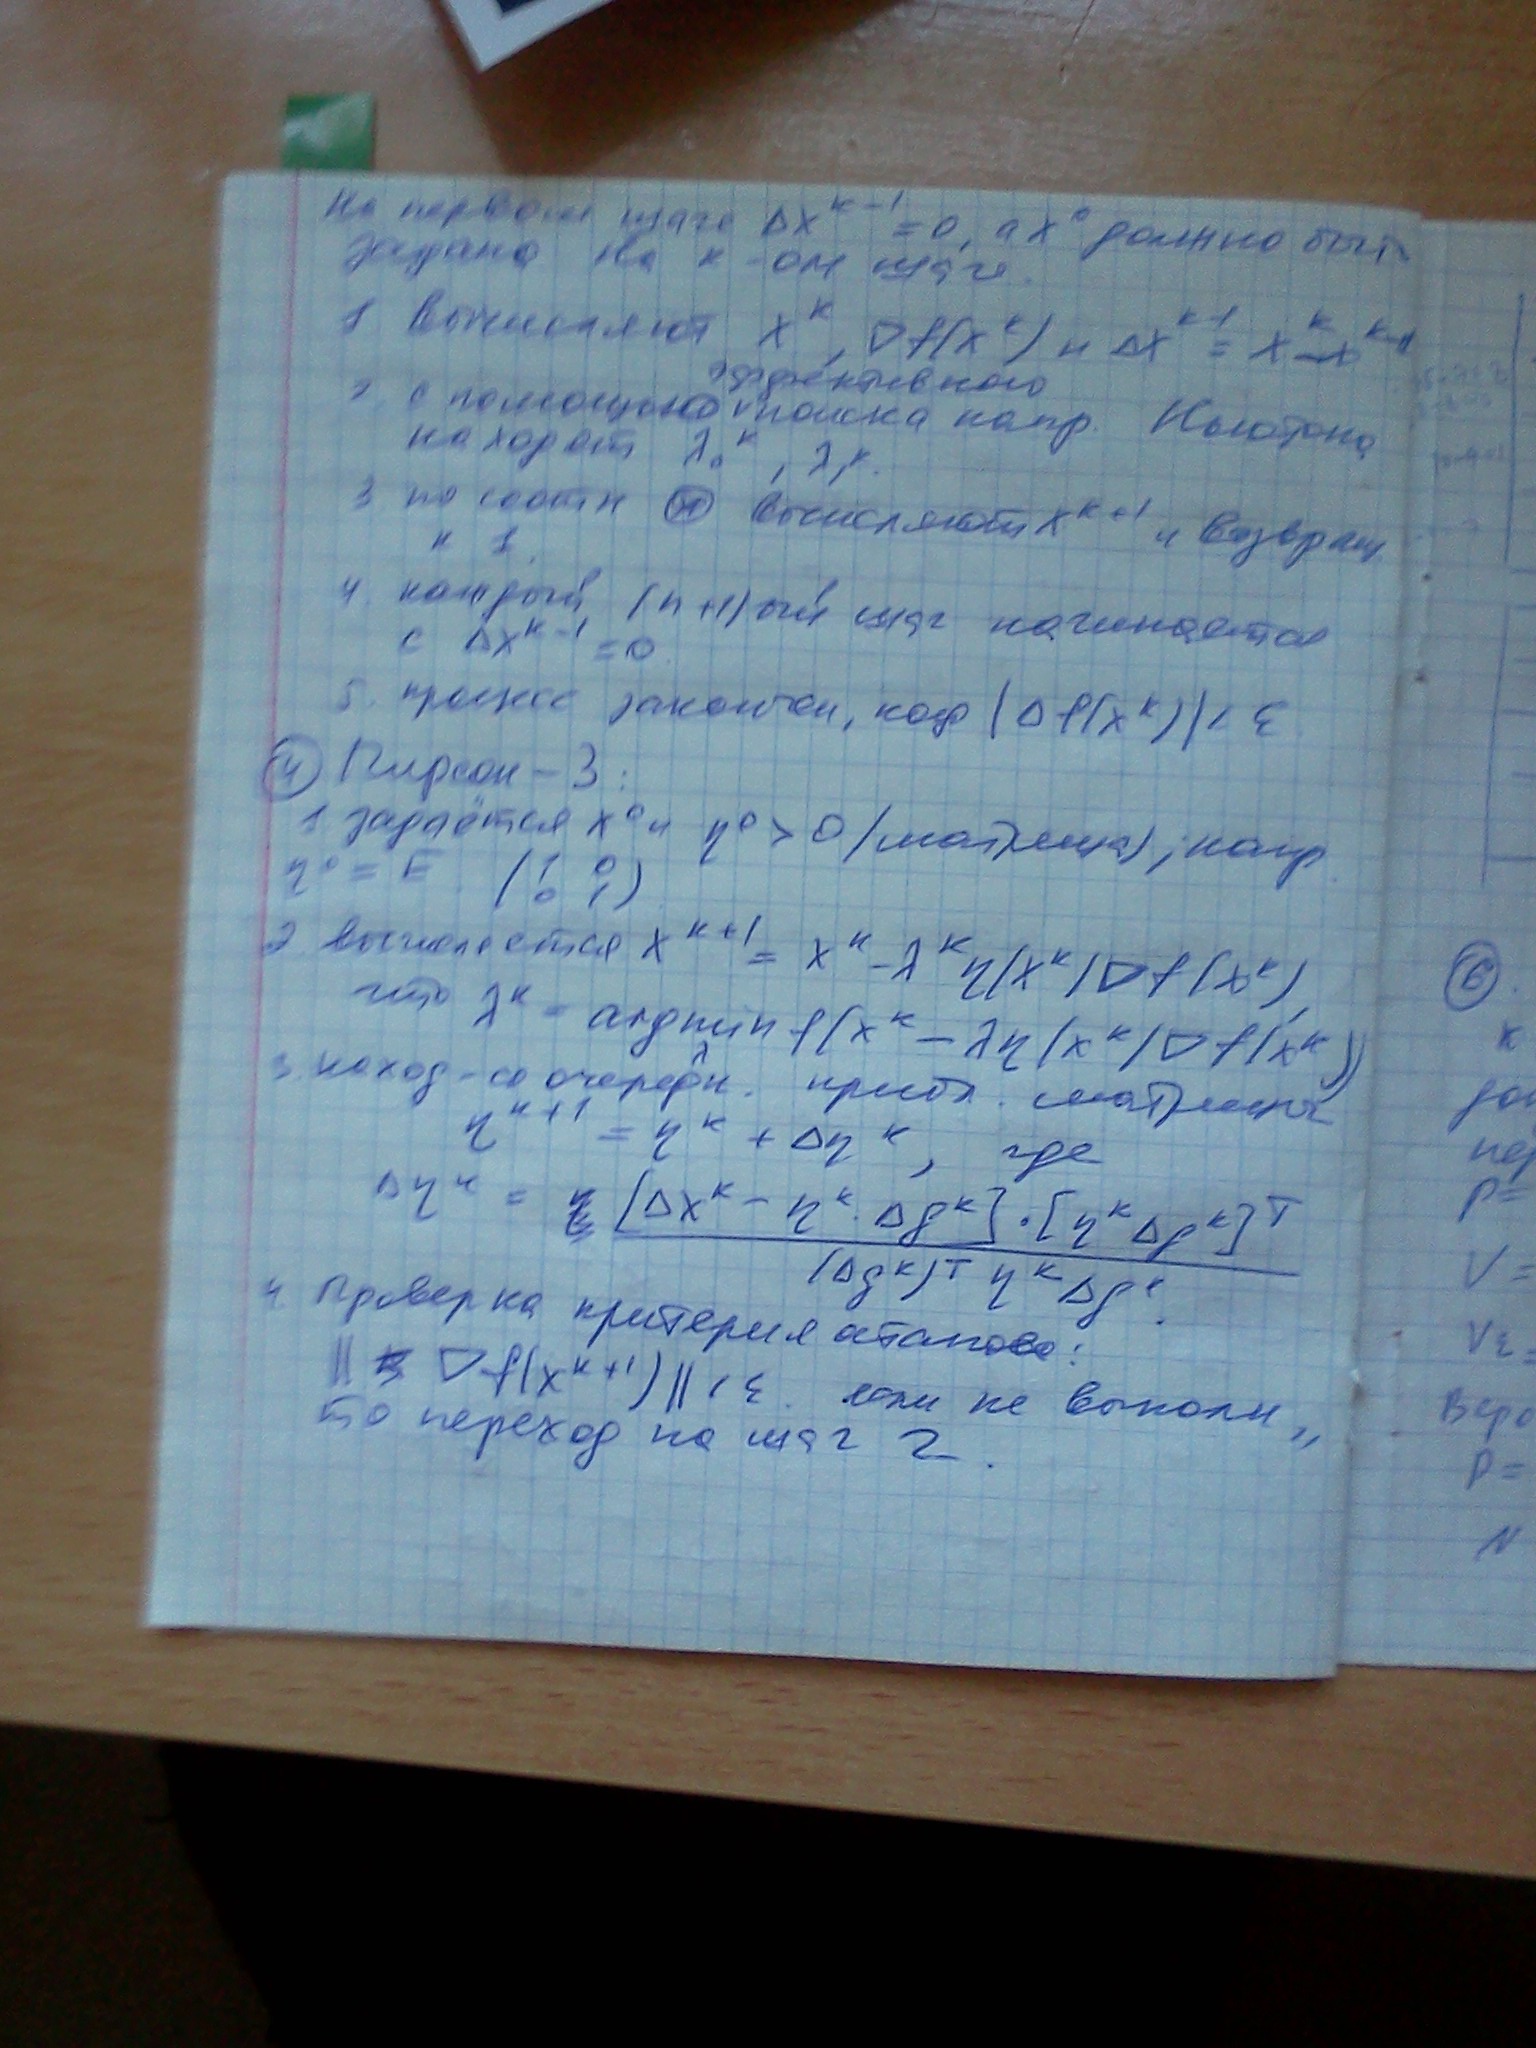 На первом шаге Δx^{к-1} = 0, а x⁰ должно быть
задано на к-ом шаге.
1 Вычисляют x^к, ∇f(x^к) и Δx^{к-1} = x^к - x^{к-1}
эффективного
2. с помощью поиска напр. Ньютона
находят λ₀^к, λ₁^к.
3. по соотн (*) вычисляют x^{к+1} и возвращ
к 1.
4. каждый (n+1)ый шаг начинается
с Δx^{к-1} = 0.
5. процесс закончен, когд |Δf(x^к)| < ε.
(4) Пирсон-3:
1 задаётся x⁰ и η⁰ > 0 (матрица), напр.
η⁰ = E (1 0
0 1)
2 вычисляется x^{к+1} = x^к - λ^к η(x^к) ∇f(x^к),
что λ^к = argmin f(x^к - λη(x^к) ∇f(x^к))
λ
3. наход-ся очередн. прибл. матрицы
η^{к+1} = η^к + Δη^к, где
Δη^к = [Δx^к - η^к · Δg^к] · [η^к Δg^к]^T
(Δg^к)^T η^к Δg^к.
4. Проверка критерия останова:
|| ∇f(x^{к+1}) || < ε. если не выполн,,
то переход на шаг 2.
(6).
к
нер
P=
V=
V_ε=
Веро
P=
N